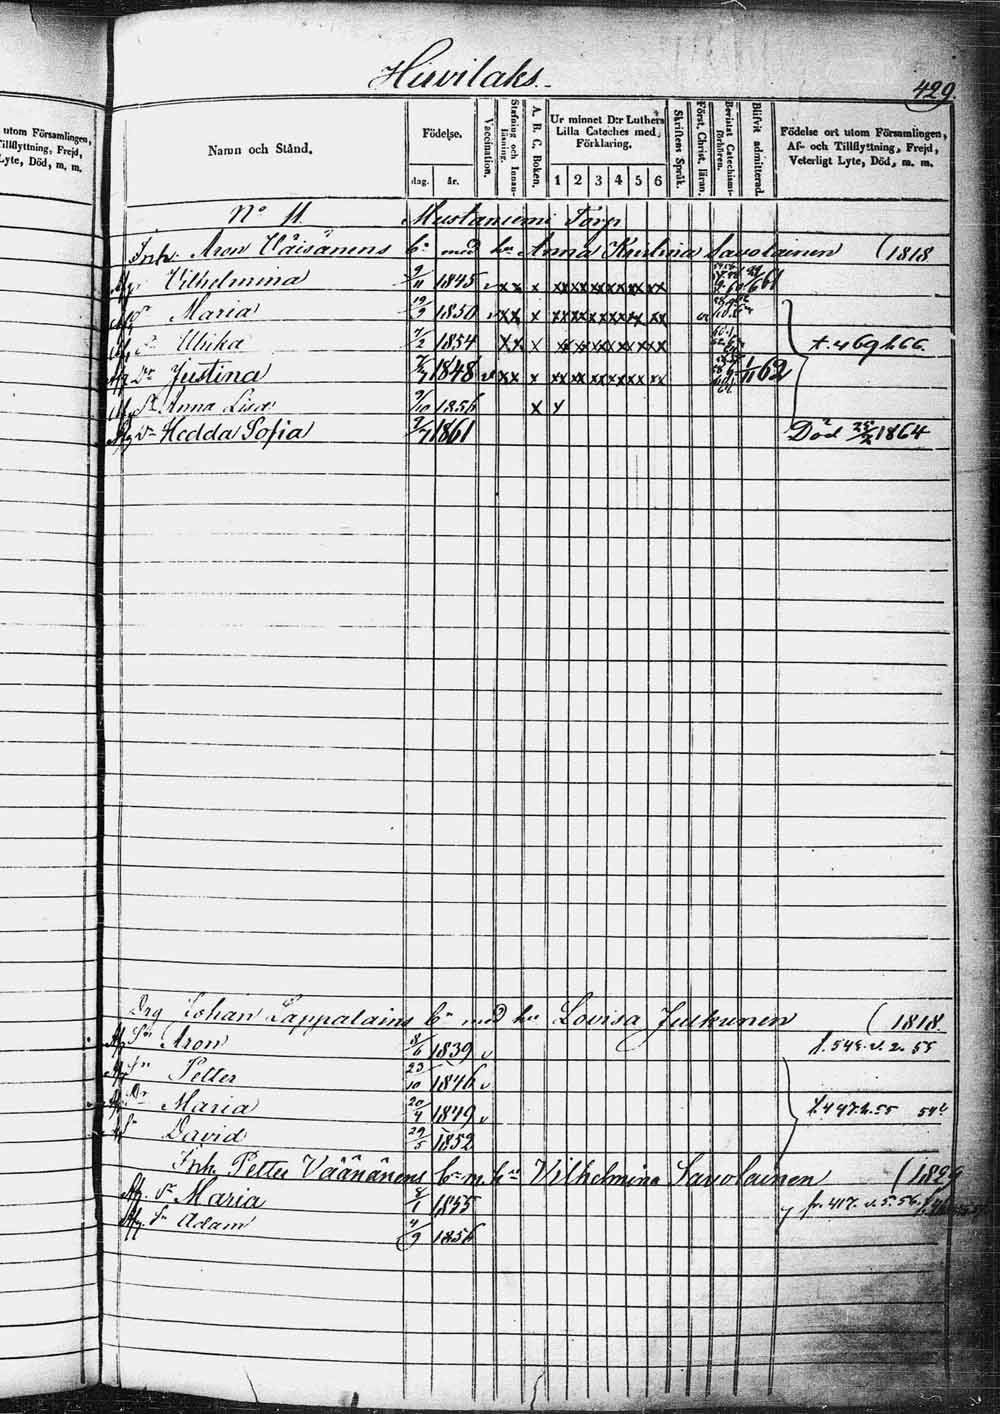 Hirvilaks.
429.
utom Församlingen,
Tillflyttning, Frejd,
Lyte, Död, m. m.
Namn och Stånd.
Födelse.
dag. år.
Vaccination.
Stafning och Innanläsning.
A. B. C. Boken.
Ur minnet D:r Luthers Lilla Cateches med Förklaring.
1 2 3 4 5 6
Skriftens Språk.
Först. Christ. läran.
Bevistat Catechismiförhören.
Blifvit admitterad.
Födelse ort utom Församlingen,
Af- och Tillflyttning, Frejd,
Veterligt Lyte, Död, m. m.
No 11. Mustaniemi Torp
Inh. Aron Väisänens bn med hu Anna Kristina Savolainen (1818.
Vilhelmina 1845 v x x x xx xx xx xx xx xx 61
Maria 19/9 1850 v x x x xx xx xx xx xx xx
Ulrika 7/2 1854 x x x xx xx xx xx xx xx t. 469 h 66.
Dr Justina 1848 v x x x xx xx xx xx xx xx 1/11 62
Anna Lisa 9/10 1856 x x
Hedda Sofia 1861 Död 1864
Drg Johan Lappalains bn med hu Lovisa Julkunen (1818.
Aron 8/6 1839 v f. 548. v. 2. 55
Petter 23/10 1846 v
Dr Maria 20/4 1849 v
David 29/5 1852
Inh. Petter Väänänens bn m. hu Vilhelmina Savolainen (1829
Maria 8/1 1855 fr. 417. v. 5. 56.
Adam 4/9 1856